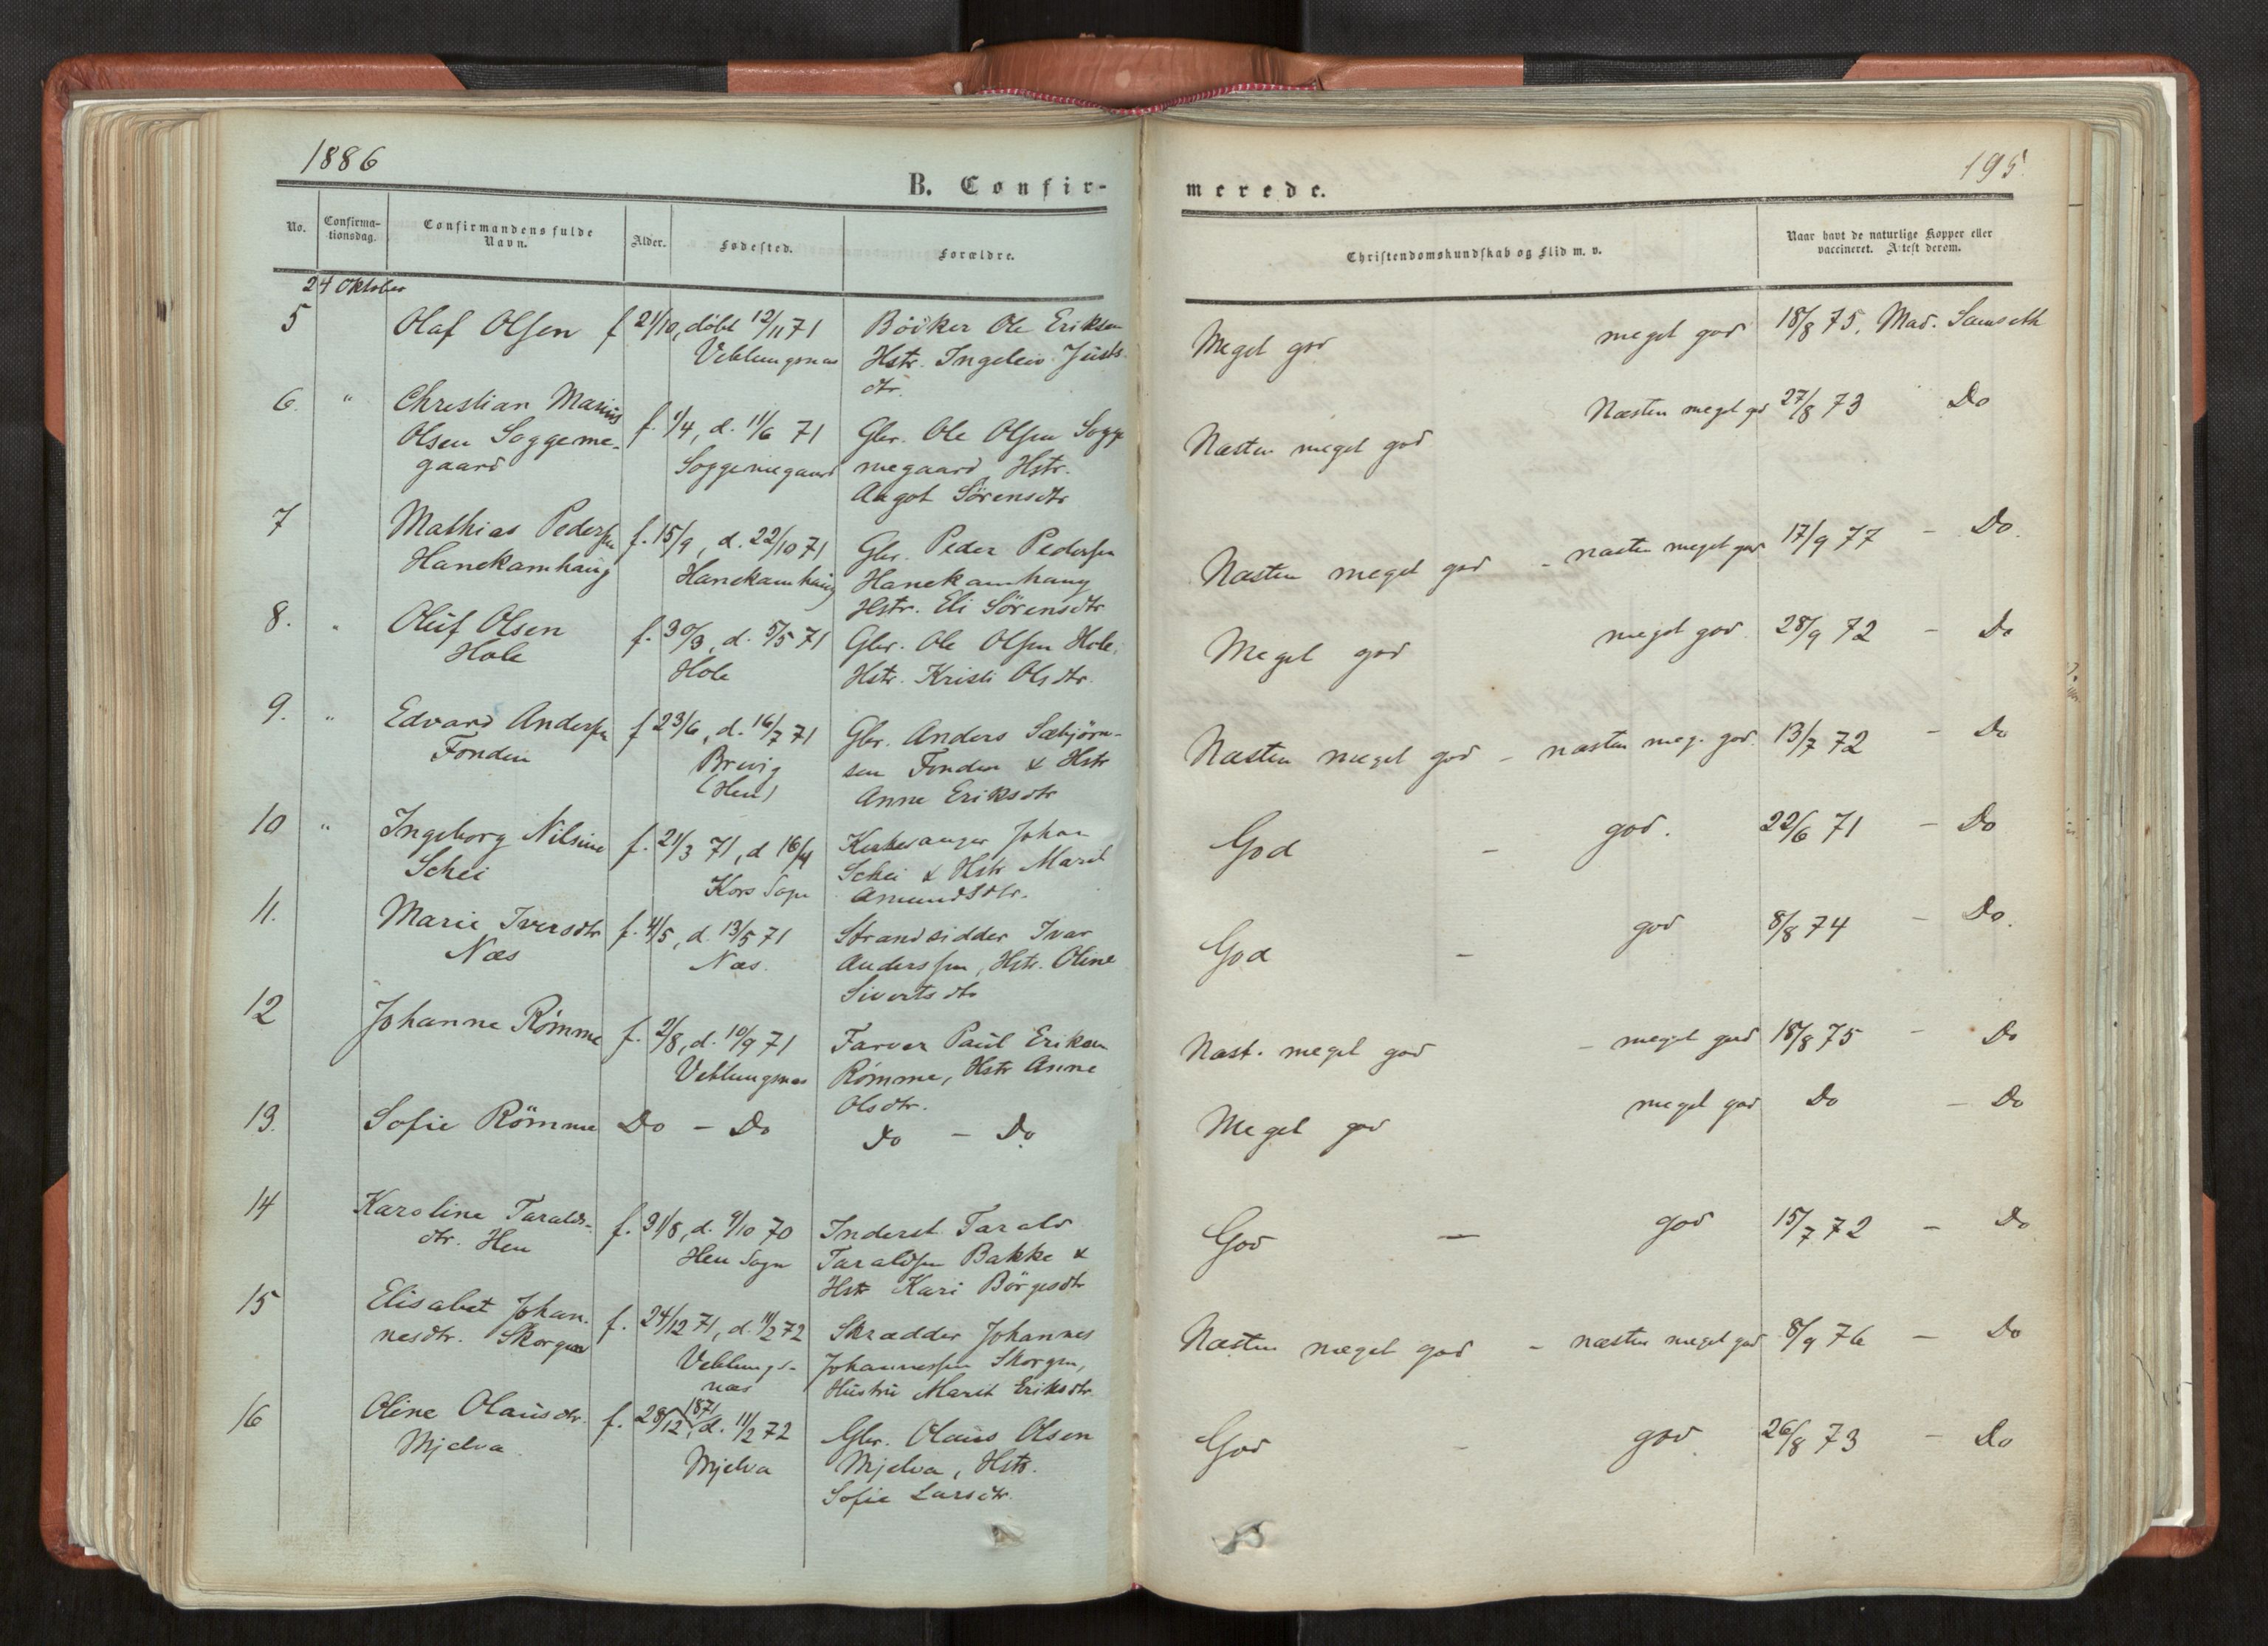 1886
B. Confir-
No.
Confirma-
tionsdag.
Confirmandens fulde
Navn.
Alder.
Fødested.
Forældre.
24 Oktober
5
Olaf Olsen
f 21/10, døbt 12/11 71
Veblungsnæs
Bödker Ole Eriksen
Hstr. Ingeleiv Justs
dtr.
6. "
Christian Marius
Olsen Soggeme-
gaard
f. 1/4, d. 11/6 71
Soggemegaard
Gbr. Ole Olsen Sogge
megaard, Hstr.
Aagot Sörensdtr
7
Mathias Pedersen
Hanekamhaug
f. 15/9, d. 22/10 71
Hanekamhaug
Gbr. Peder Pedersen
Hanekamhaug
Hstr. Eli Sörensdtr
8. "
Oluf Olsen
Hole
f. 30/3, d. 5/5 71
Hole
Gbr. Ole Olsen Hole,
Hstr. Kristi Olsdtr.
9. "
Edvard Andersen
Fonden
f 23/6, d. 16/7 71
Brevig
(Hen)
Gbr. Anders Sæbjörn-
sen Fonden & Hstr
Anne Eriksdtr
10 "
Ingeborg Nilsine
Schei
f. 21/3 71, d 16/4
Kors Sogn
Kirkesanger Johan
Schei & Hstr Marit
Amundsdtr.
11.
Marie Iversdtr
Næs
f. 4/5, d. 13/5 71
Næs.
Strandsidder Ivar
Anderssen, Hstr. Oline
Sivertsdtr
12
Johanne Römme
f. 2/8, d. 10/9 71
Veblungsnæs
Farver Paul Eriksen
Römme, Hstr Anne
Olsdtr.
13.
Sofie Römme
Do - Do
Do - Do
14
Karoline Taralds-
dtr. Hen
f. 31/8, d. 9/10 70
Hen Sogn
Inderst Tarald
Taraldsen Bakke &
Hstr Kari Börgesdtr
15
Elisabet Johan-
nesdtr. Skorgen
f. 24/12 71, d. 11/2 72
Veblungs-
næs
Skrædder Johannes
Johannessen Skorgen,
Hustru Marit Eriksdtr.
16
Oline Olausdtr.
Mjelva.
f. 28/12 1871, d. 11/2 72
Mjelva
Gbr. Olaus Olsen
Mjelva, Hstr.
Sofie Larsdtr.
195.
merede.
Christendomskundskab og Flid m. v.
Naar havt de naturlige Kopper eller
vaccineret. Attest derom.
Meget god meget god 18/8 75, Mad. Samseth
Næsten meget god Næsten meget god 27/8 73 Do
Næsten meget god - næsten meget god 17/9 77 - Do.
Meget god meget god 28/9 72 - Do
Næsten meget god - næsten meg. god. 13/7 72 - Do
God - god. 22/6 71 - Do
God - god 8/8 74 - Do.
Næst. meget god - meget god 18/8 75 - Do
Meget god meget god Do - Do
God - god 15/7 72 - Do
Næsten meget god - næsten meget god 8/9 76 - Do
God - god 26/8 73 - Do